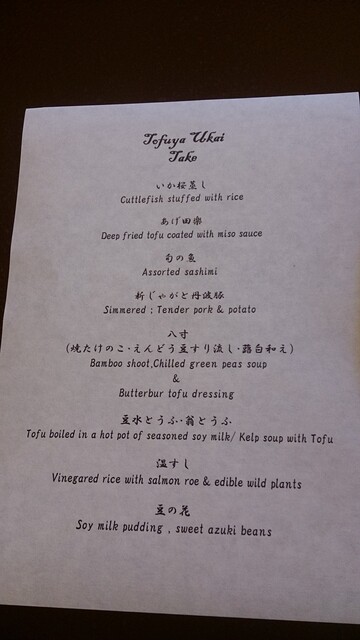 Tofuya Ukai
Take
いか桜蒸し
Cuttlefish stuffed with rice
あげ田楽
Deep fried tofu coated with miso sauce
旬の魚
Assorted sashimi
新じゃがと丹波豚
Simmered ; Tender pork & potato
八寸
(焼たけのこ・えんどう豆すり流し・蕗白和え)
Bamboo shoot,Chilled green peas soup
&
Butterbur tofu dressing
豆水とうふ・翁とうふ
Tofu boiled in a hot pot of seasoned soy milk/ Kelp soup with Tofu
温すし
Vinegared rice with salmon roe & edible wild plants
豆の花
Soy milk pudding , sweet azuki beans